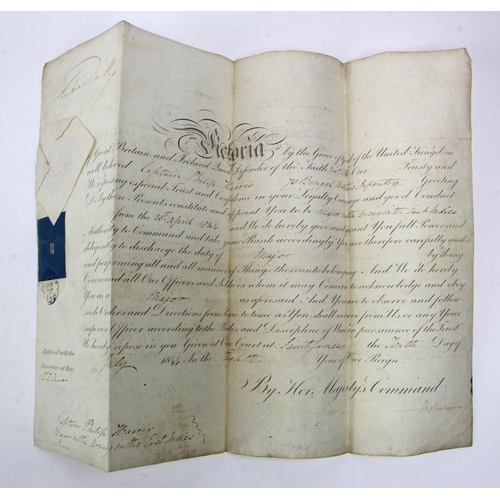 Victoria by the Grace of God of the United Kingdom
of Great Britain and Ireland Queen Defender of the Faith &c To Our Trusty and
well beloved Captain Philip Harris 70 Bengal Native Infantry Greeting
We reposing especial Trust and Confidence in your Loyalty Courage and good Conduct
Do by these Presents constitute and appoint You to be Major in the Army in the East Indies
from the 30th April 1844 and We do hereby give and grant You full Power and
Authority to Command and take your Rank accordingly You are therefore carefully and
diligently to discharge the duty of Major by doing
and performing all and all manner of Things thereunto belonging And We do hereby
Command all Our Officers and Soldiers whom it may Concern to acknowledge and obey
You as a Major as aforesaid And You are to observe and follow
such Orders and Directions from time to time as You shall receive from Us or any Your
superior Officer according to the Rules and Discipline of War in pursuance of the Trust
We hereby repose in you Given at Our Court at Saint James's the Day of
July 1844 In the Eighth Year of Our Reign
By Her Majesty's Command
Entered with the
Secretary at War
Captain Philip Harris
Major in the Army in the East Indies